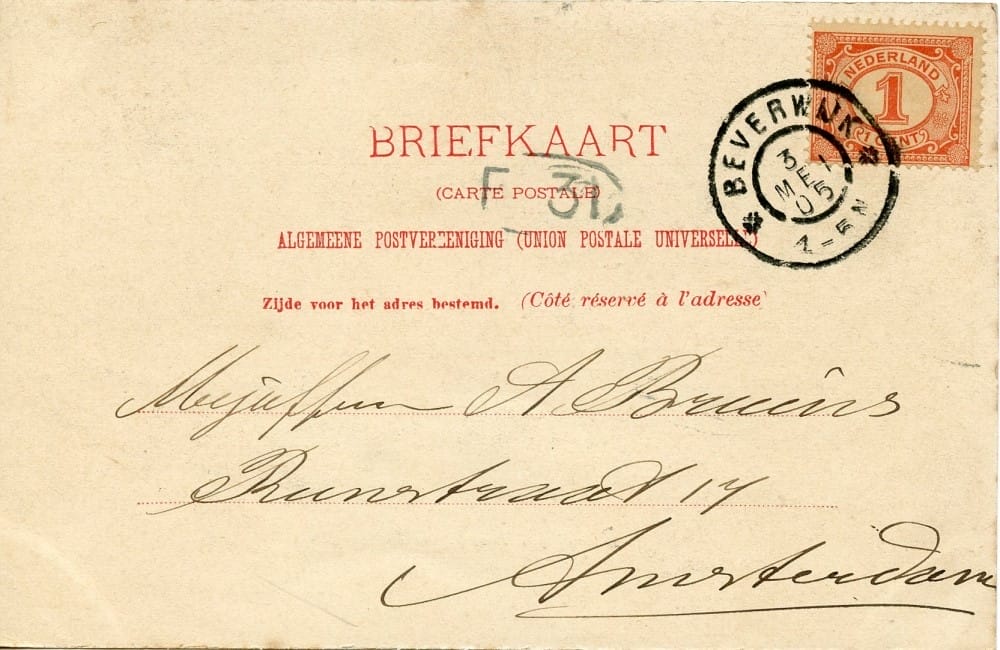 NEDERLAND
1
CENT
BEVERWIJK
3 MEI 05
1-5N
BRIEFKAART
(CARTE POSTALE)
31
ALGEMEENE POSTVEREENIGING (UNION POSTALE UNIVERSELLE)
Zijde voor het adres bestemd. (Côté réservé à l'adresse)
Mejuffrou A Bruins
Runstraat 17
Amsterdam